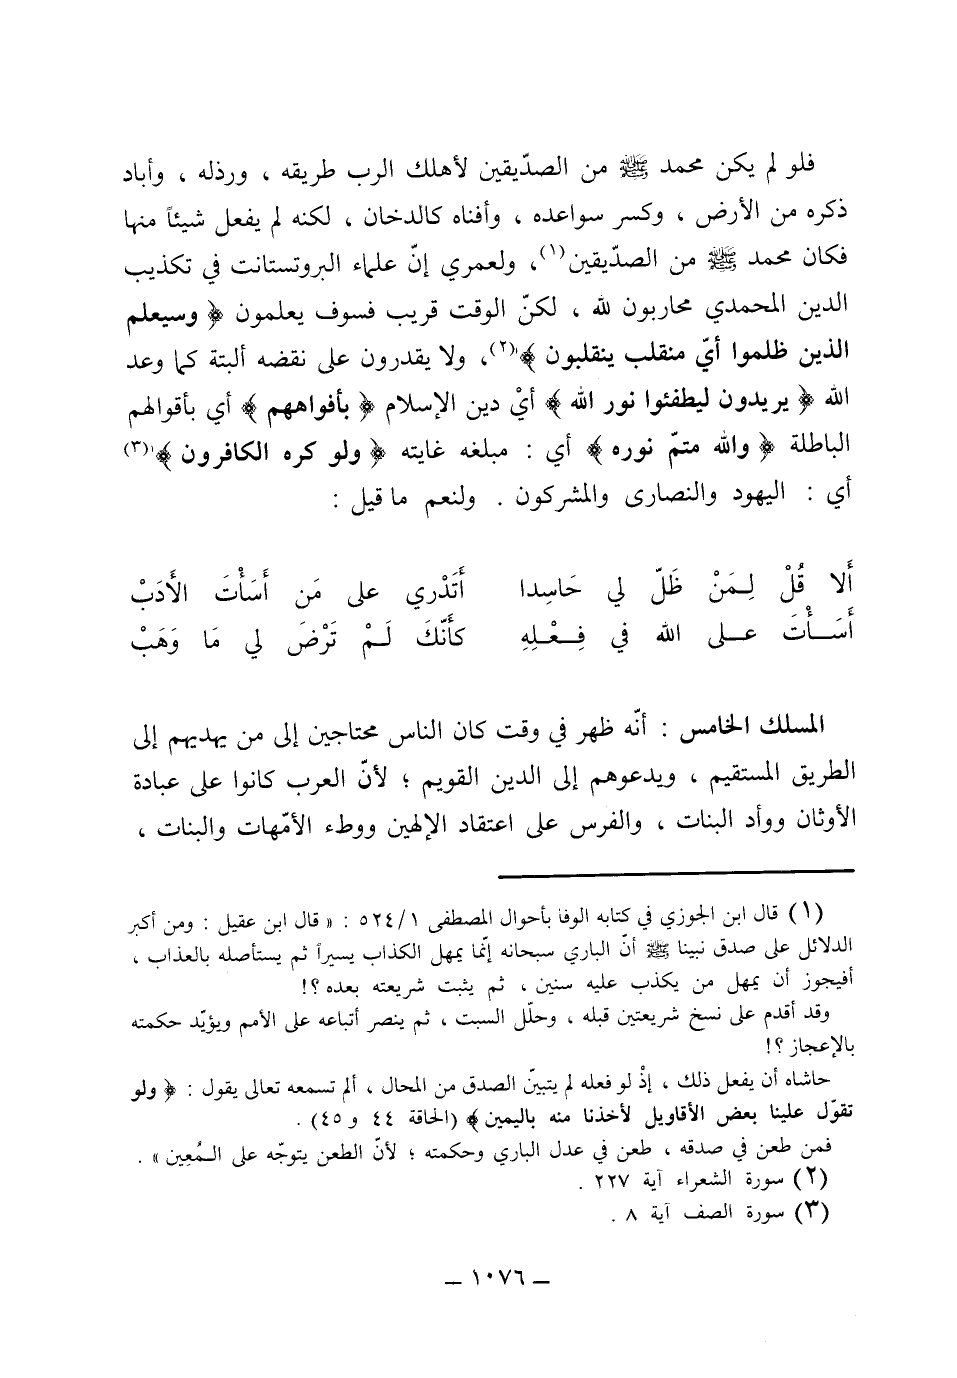 فلو لم يكن محمد ﷺ من الصدّيقين لأهلك الرب طريقه ، ورذله ، وأباد
ذكره من الأرض ، وكسر سواعده ، وأفناه كالدخان ، لكنه لم يفعل شيئاً منها
فكان محمد ﷺ من الصدّيقين(١)، ولعمري إنّ علماء البروتستانت في تكذيب
الدين المحمدي محاربون لله ، لكنّ الوقت قريب فسوف يعلمون ﴿ وسيعلم
الذين ظلموا أيّ منقلب ينقلبون ﴾(٢)، ولا يقدرون على نقضه ألبتة كما وعد
الله ﴿ يريدون ليطفئوا نور الله ﴾ أيْ دين الإسلام ﴿ بأفواههم ﴾ أي بأقوالهم
الباطلة ﴿ والله متمّ نوره ﴾ أي : مبلغه غايته ﴿ ولو كره الكافرون ﴾(٣)
أي : اليهود والنصارى والمشركون . ولنعم ما قيل :
أَلا قُلْ لِـمَنْ ظَلّ لي حَاسِدا أَتَدْري على مَن أَسَأْتَ الأَدَبْ
أَسَـــأْتَ عـــلى الله في فِـــعْلِهِ كأَنّكَ لَـمْ تَرْضَ لي مَا وَهَبْ
المسلك الخامس : أنّه ظهر في وقت كان الناس محتاجين إلى من يهديهم إلى
الطريق المستقيم ، ويدعوهم إلى الدين القويم ؛ لأنّ العرب كانوا على عبادة
الأوثان ووأد البنات ، والفرس على اعتقاد الإلهين ووطء الأمّهات والبنات ،
(١) قال ابن الجوزي في كتابه الوفا بأحوال المصطفى ٥٢٤/١ : « قال ابن عقيل : ومن أكبر
الدلائل على صدق نبينا ﷺ أنّ الباري سبحانه إنّما يمهل الكذاب يسيراً ثم يستأصله بالعذاب ،
أفيجوز أن يمهل من يكذب عليه سنين ، ثم يثبت شريعته بعده ؟!
وقد أقدم على نسخ شريعتين قبله ، وحلّل السبت ، ثم ينصر أتباعه على الأمم ويؤيّد حكمته
بالإعجاز ؟!
حاشاه أن يفعل ذلك ، إذْ لو فعله لم يتبينّ الصدق من المحال ، ألم تسمعه تعالى يقول : ﴿ ولو
تقوّل علينا بعض الأقاويل لأخذنا منه باليمين ﴾ (الحاقة ٤٤ و ٤٥) .
فمن طعن في صدقه ، طعن في عدل الباري وحكمته ؛ لأنّ الطعن يتوجّه على الـمُعِين » .
(٢) سورة الشعراء آية ٢٢٧ .
(٣) سورة الصف آية ٨ .
— ١٠٧٦ —